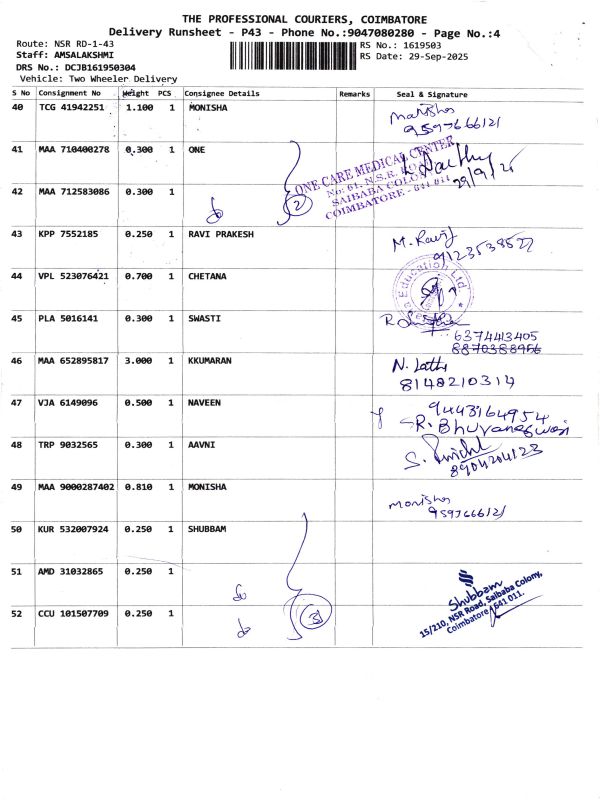 THE PROFESSIONAL COURIERS, COIMBATORE
Delivery Runsheet - P43 - Phone No.:9047080280 - Page No.:4
Route: NSR RD-1-43
Staff: AMSALAKSHMI
DRS No.: DCJB161950304
Vehicle: Two Wheeler Delivery
RS No.: 1619503
RS Date: 29-Sep-2025
S No Consignment No Weight PCS Consignee Details Remarks Seal & Signature
40 TCG 41942251 1.100 1 MONISHA
Monisha
9597666121
41 MAA 710400278 0.300 1 ONE
ONE CARE MEDICAL CENTER
No: 61, N.S.R. ROAD
SAIBABA COLONY
COIMBATORE - 641 011
29/9/25
42 MAA 712583086 0.300 1
do
2
43 KPP 7552185 0.250 1 RAVI PRAKESH
M. Ravi
9123538527
44 VPL 523076421 0.700 1 CHETANA
Education Ltd
45 PLA 5016141 0.300 1 SWASTI
6374413405
8870388956
46 MAA 652895817 3.000 1 KKUMARAN
N. Latha
8148210314
47 VJA 6149096 0.500 1 NAVEEN
9443164954
R. Bhuvaneswari
48 TRP 9032565 0.300 1 AAVNI
8904204123
49 MAA 9000287402 0.810 1 MONISHA
Monisha
9597666121
50 KUR 532007924 0.250 1 SHUBBAM
51 AMD 31032865 0.250 1
do
Shubbam
15/210, NSR Road, Saibaba Colony,
Coimbatore - 641 011.
52 CCU 101507709 0.250 1
do
3